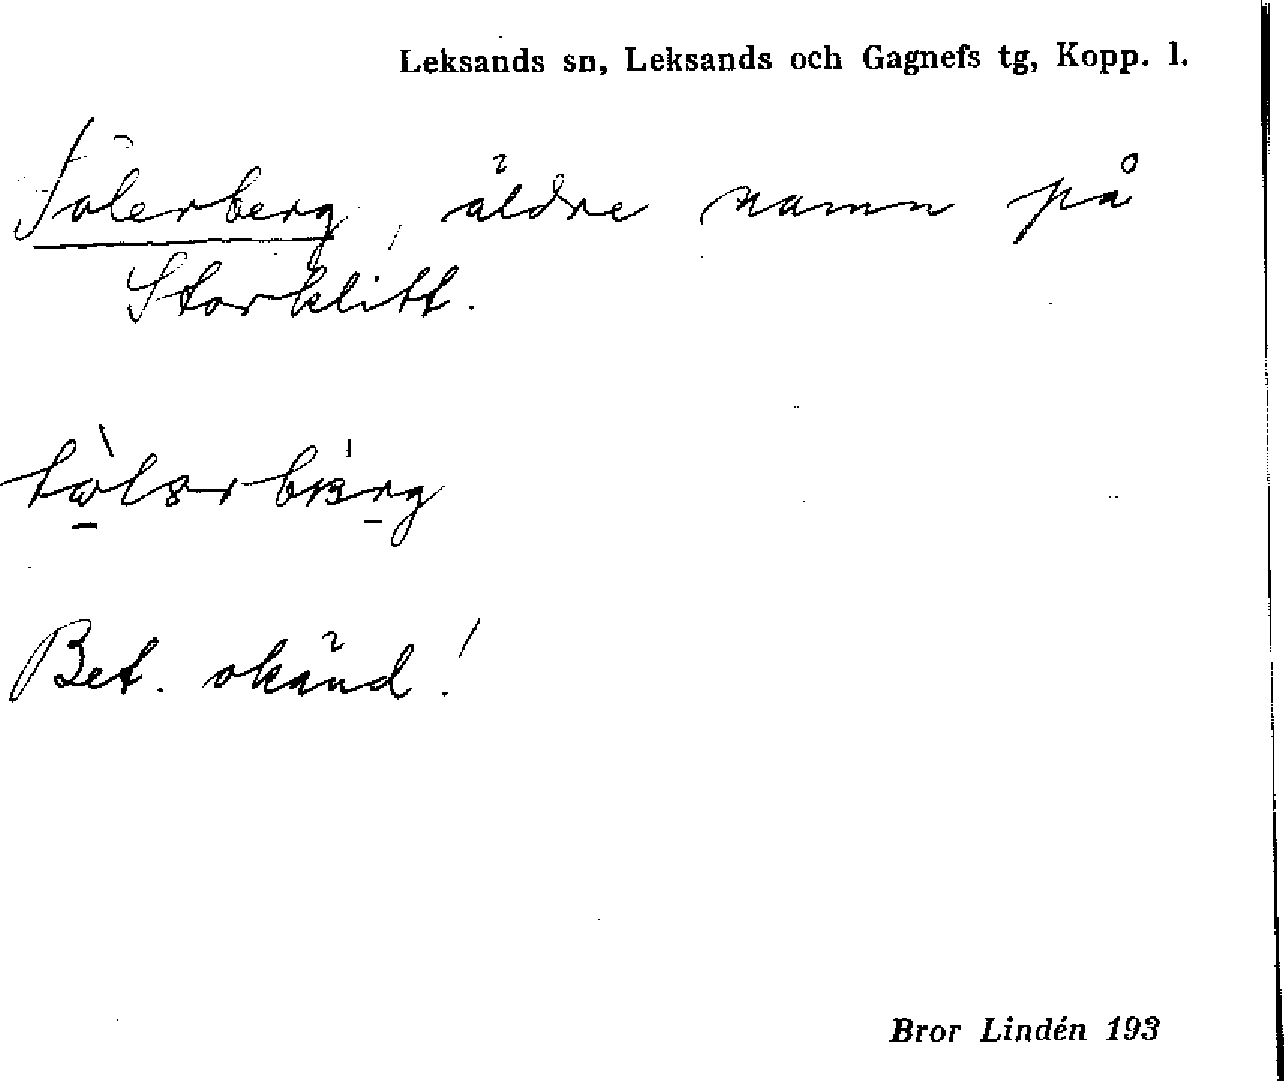 Leksands sn, Leksands och Gagnefs tg, Kopp. l.
Tolerberg, äldre namn på
Storklitt.
Bet. okänd!
Bror Lindén 193